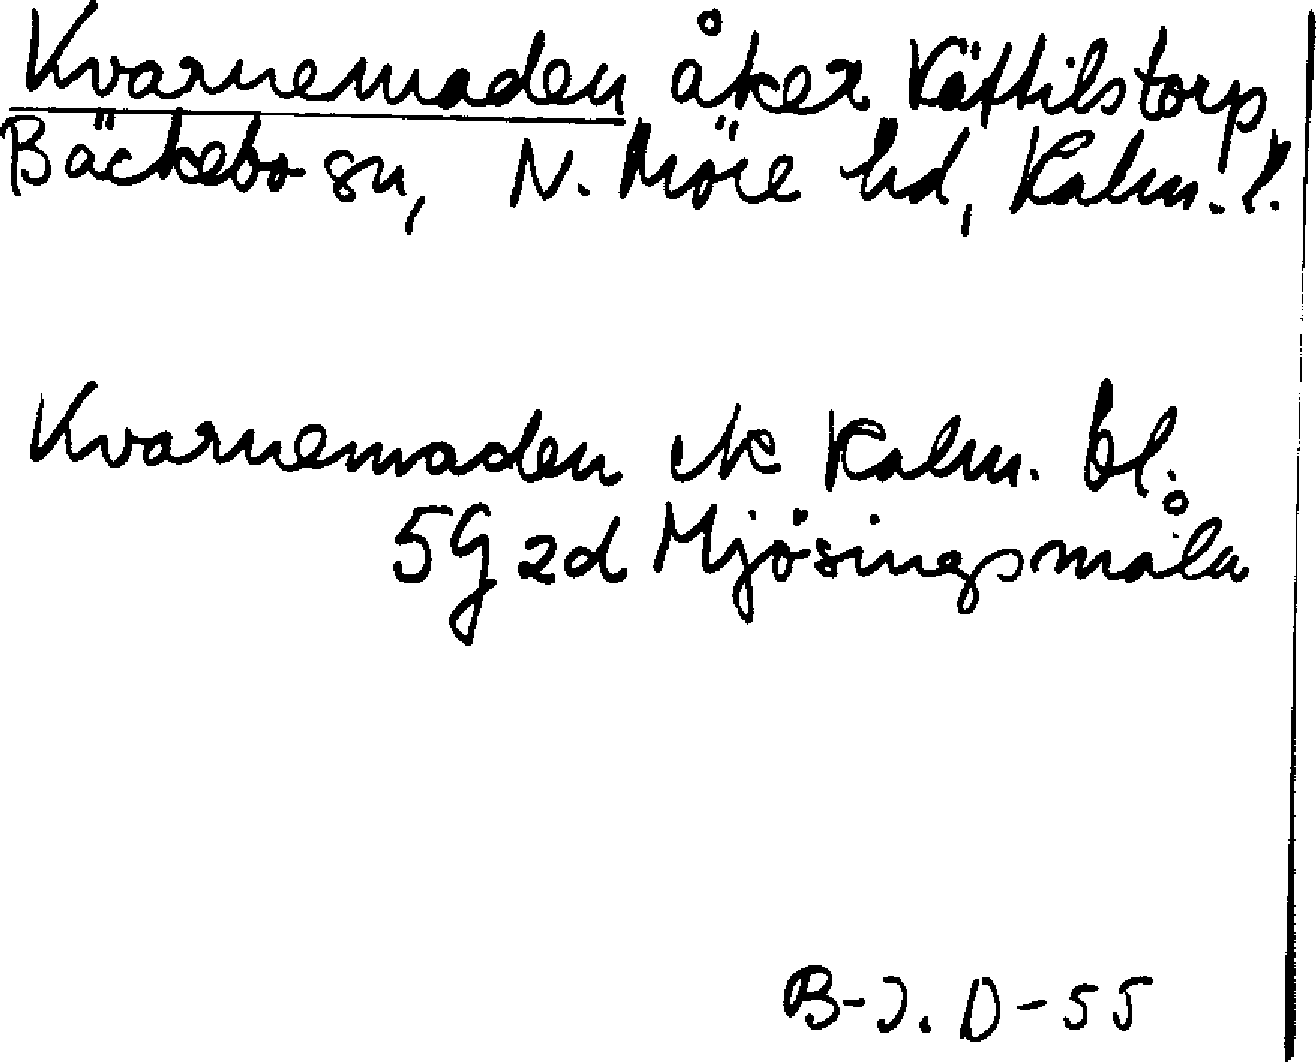 Kvarnemaden åker Kättilstorp
Bäckebo sn, N. Möre hd, Kalm. l.
Kvarnemaden ek Kalm. bl.
5G 2d Mjösingsmåla
B-J. D-55